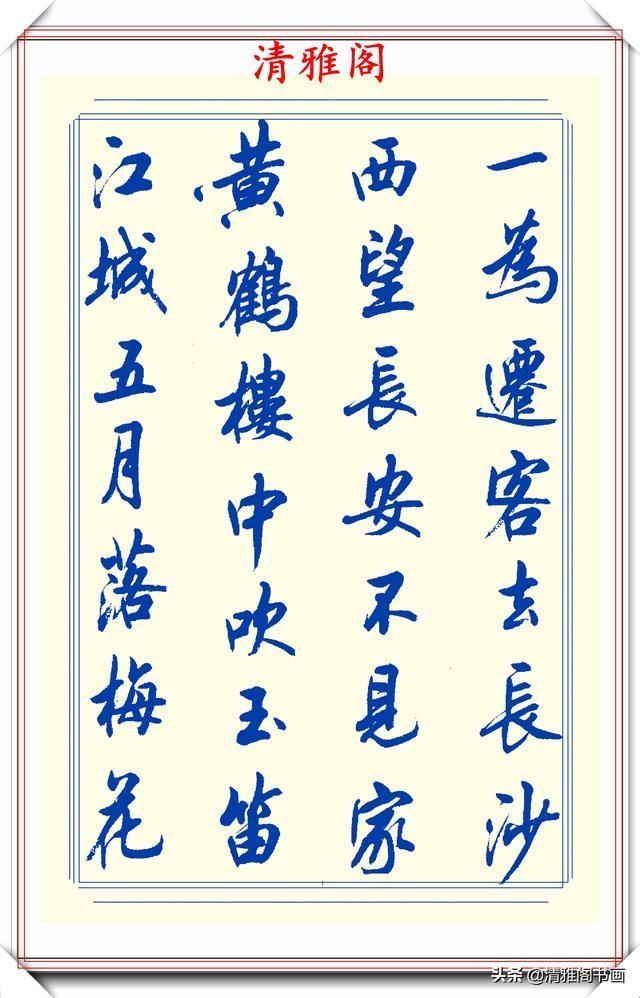 清雅阁
一為遷客去長沙
西望長安不見家
黃鶴樓中吹玉笛
江城五月落梅花
头条 @清雅阁书画